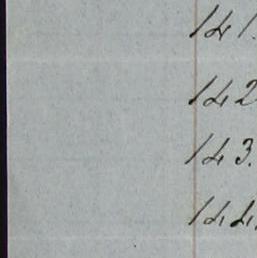 141.
142
143.
144.